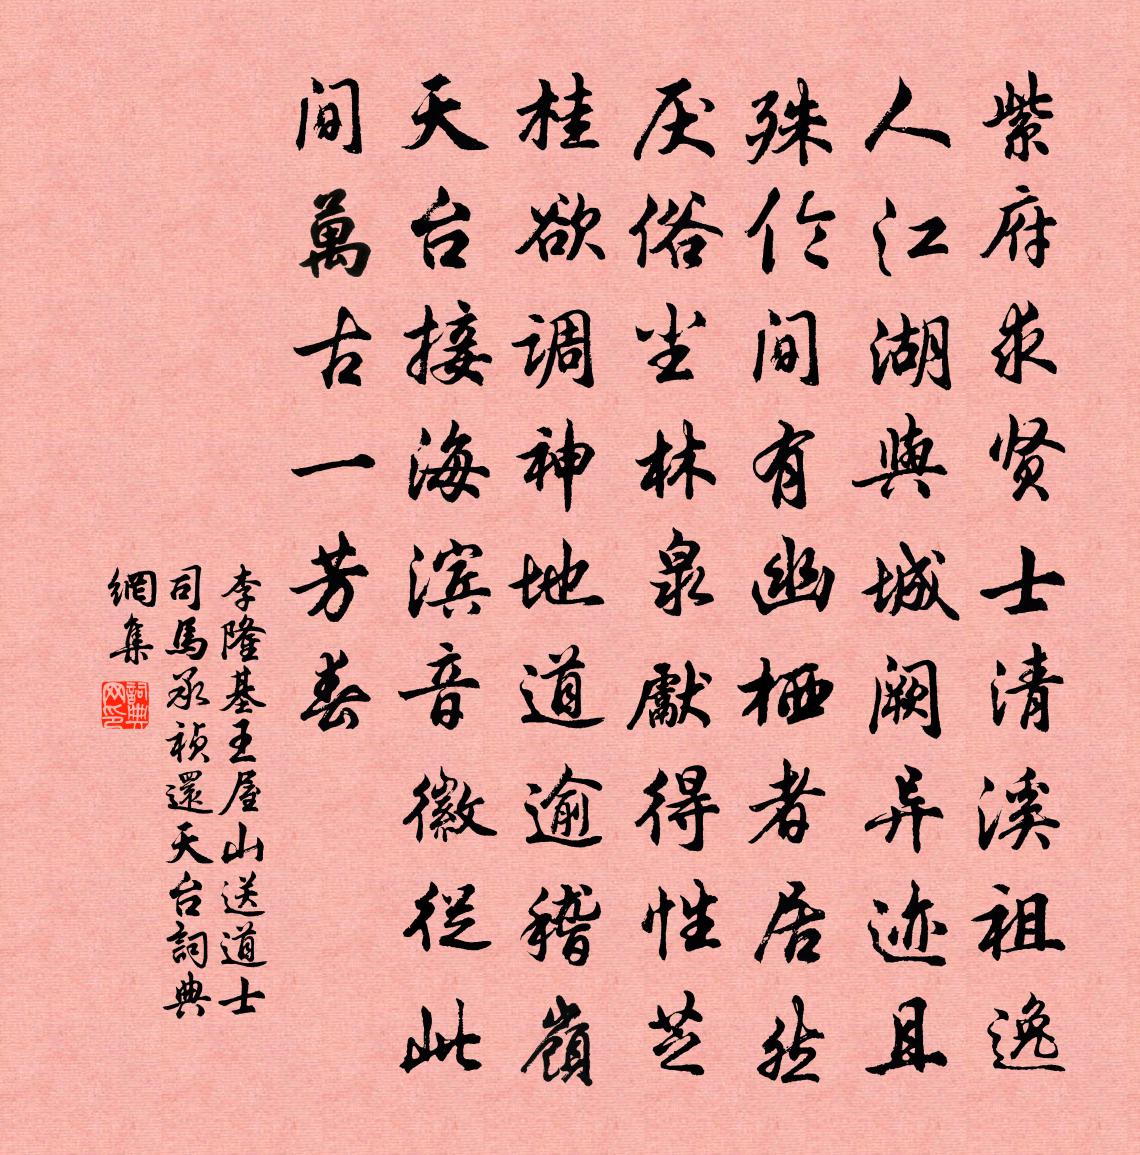 紫府求贤士清溪祖逸
人江湖與城阙异迹且
殊伦间有幽栖者居然
厌俗尘林泉獻得性芝
桂欲调神地道逾稽嶺
天台接海滨音徽從此
间萬古一芳春
李隆基王屋山送道士
司馬承祯還天台詞典
網集
詞典
网印